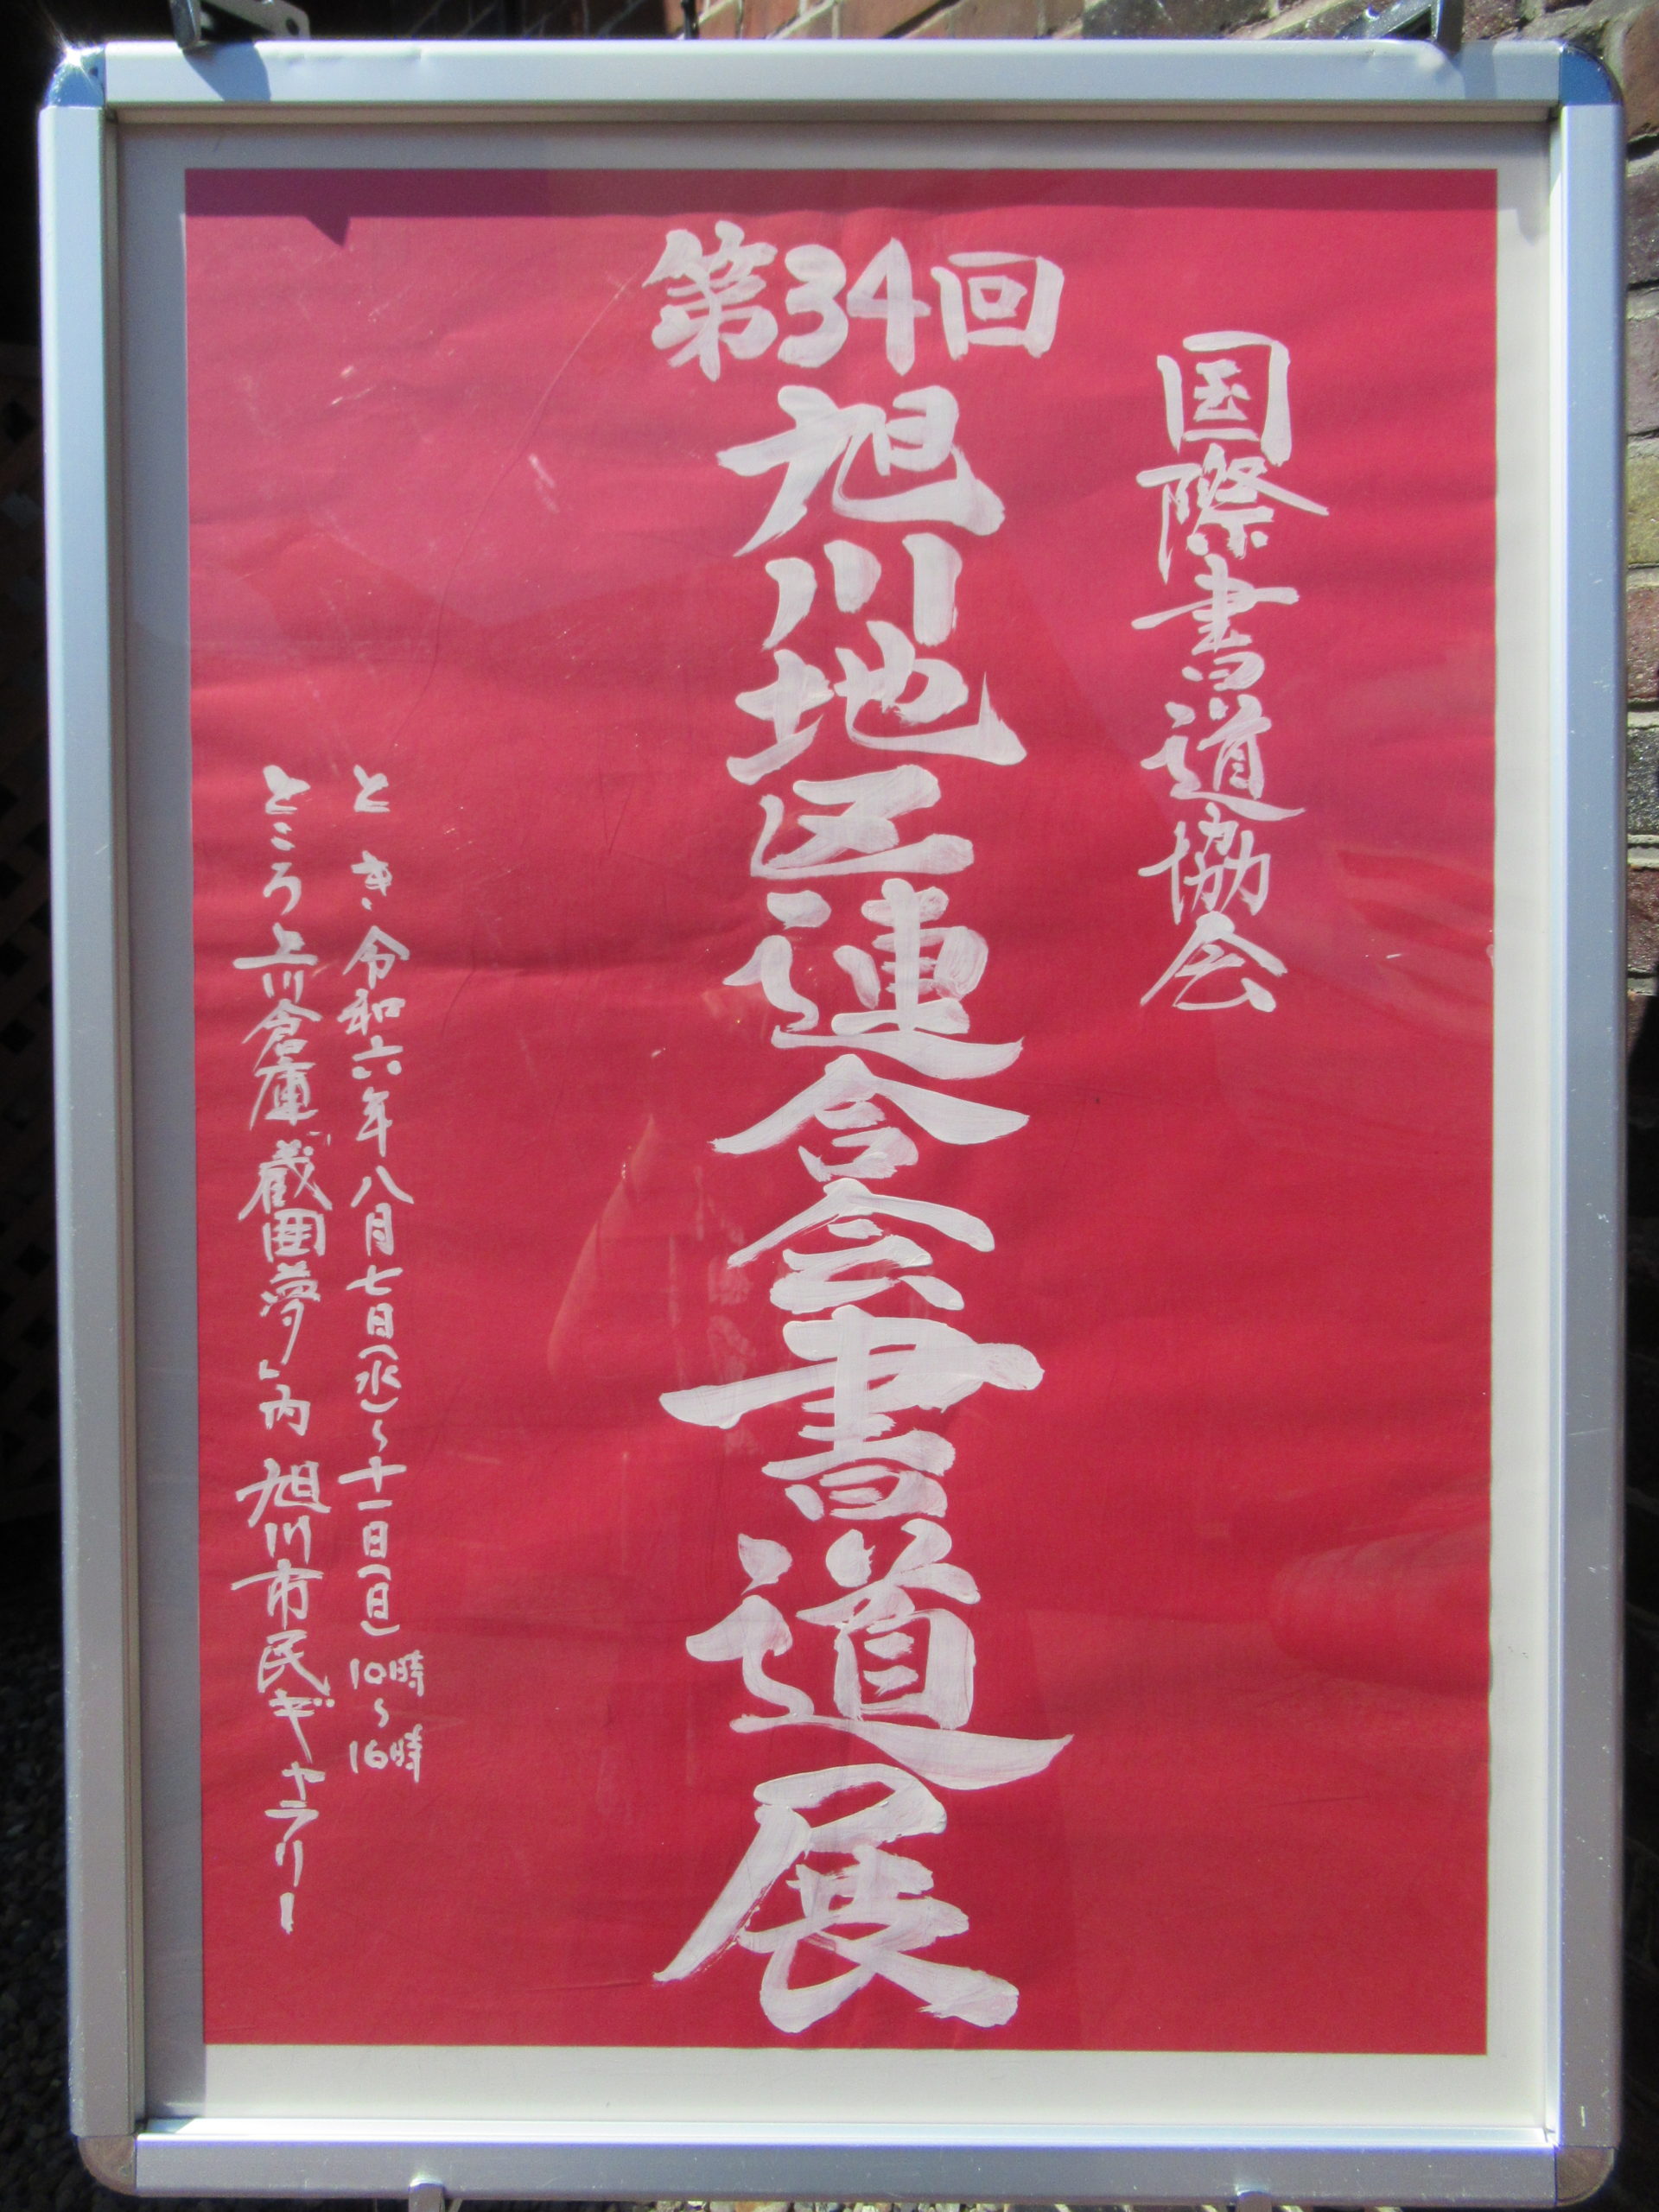 国際書道協会
第34回
旭川地区連合会書道展
とき 令和六年八月七日(水)~十一日(日) 10時~16時
ところ 上川倉庫「蔵囲夢」内 旭川市民ギャラリー